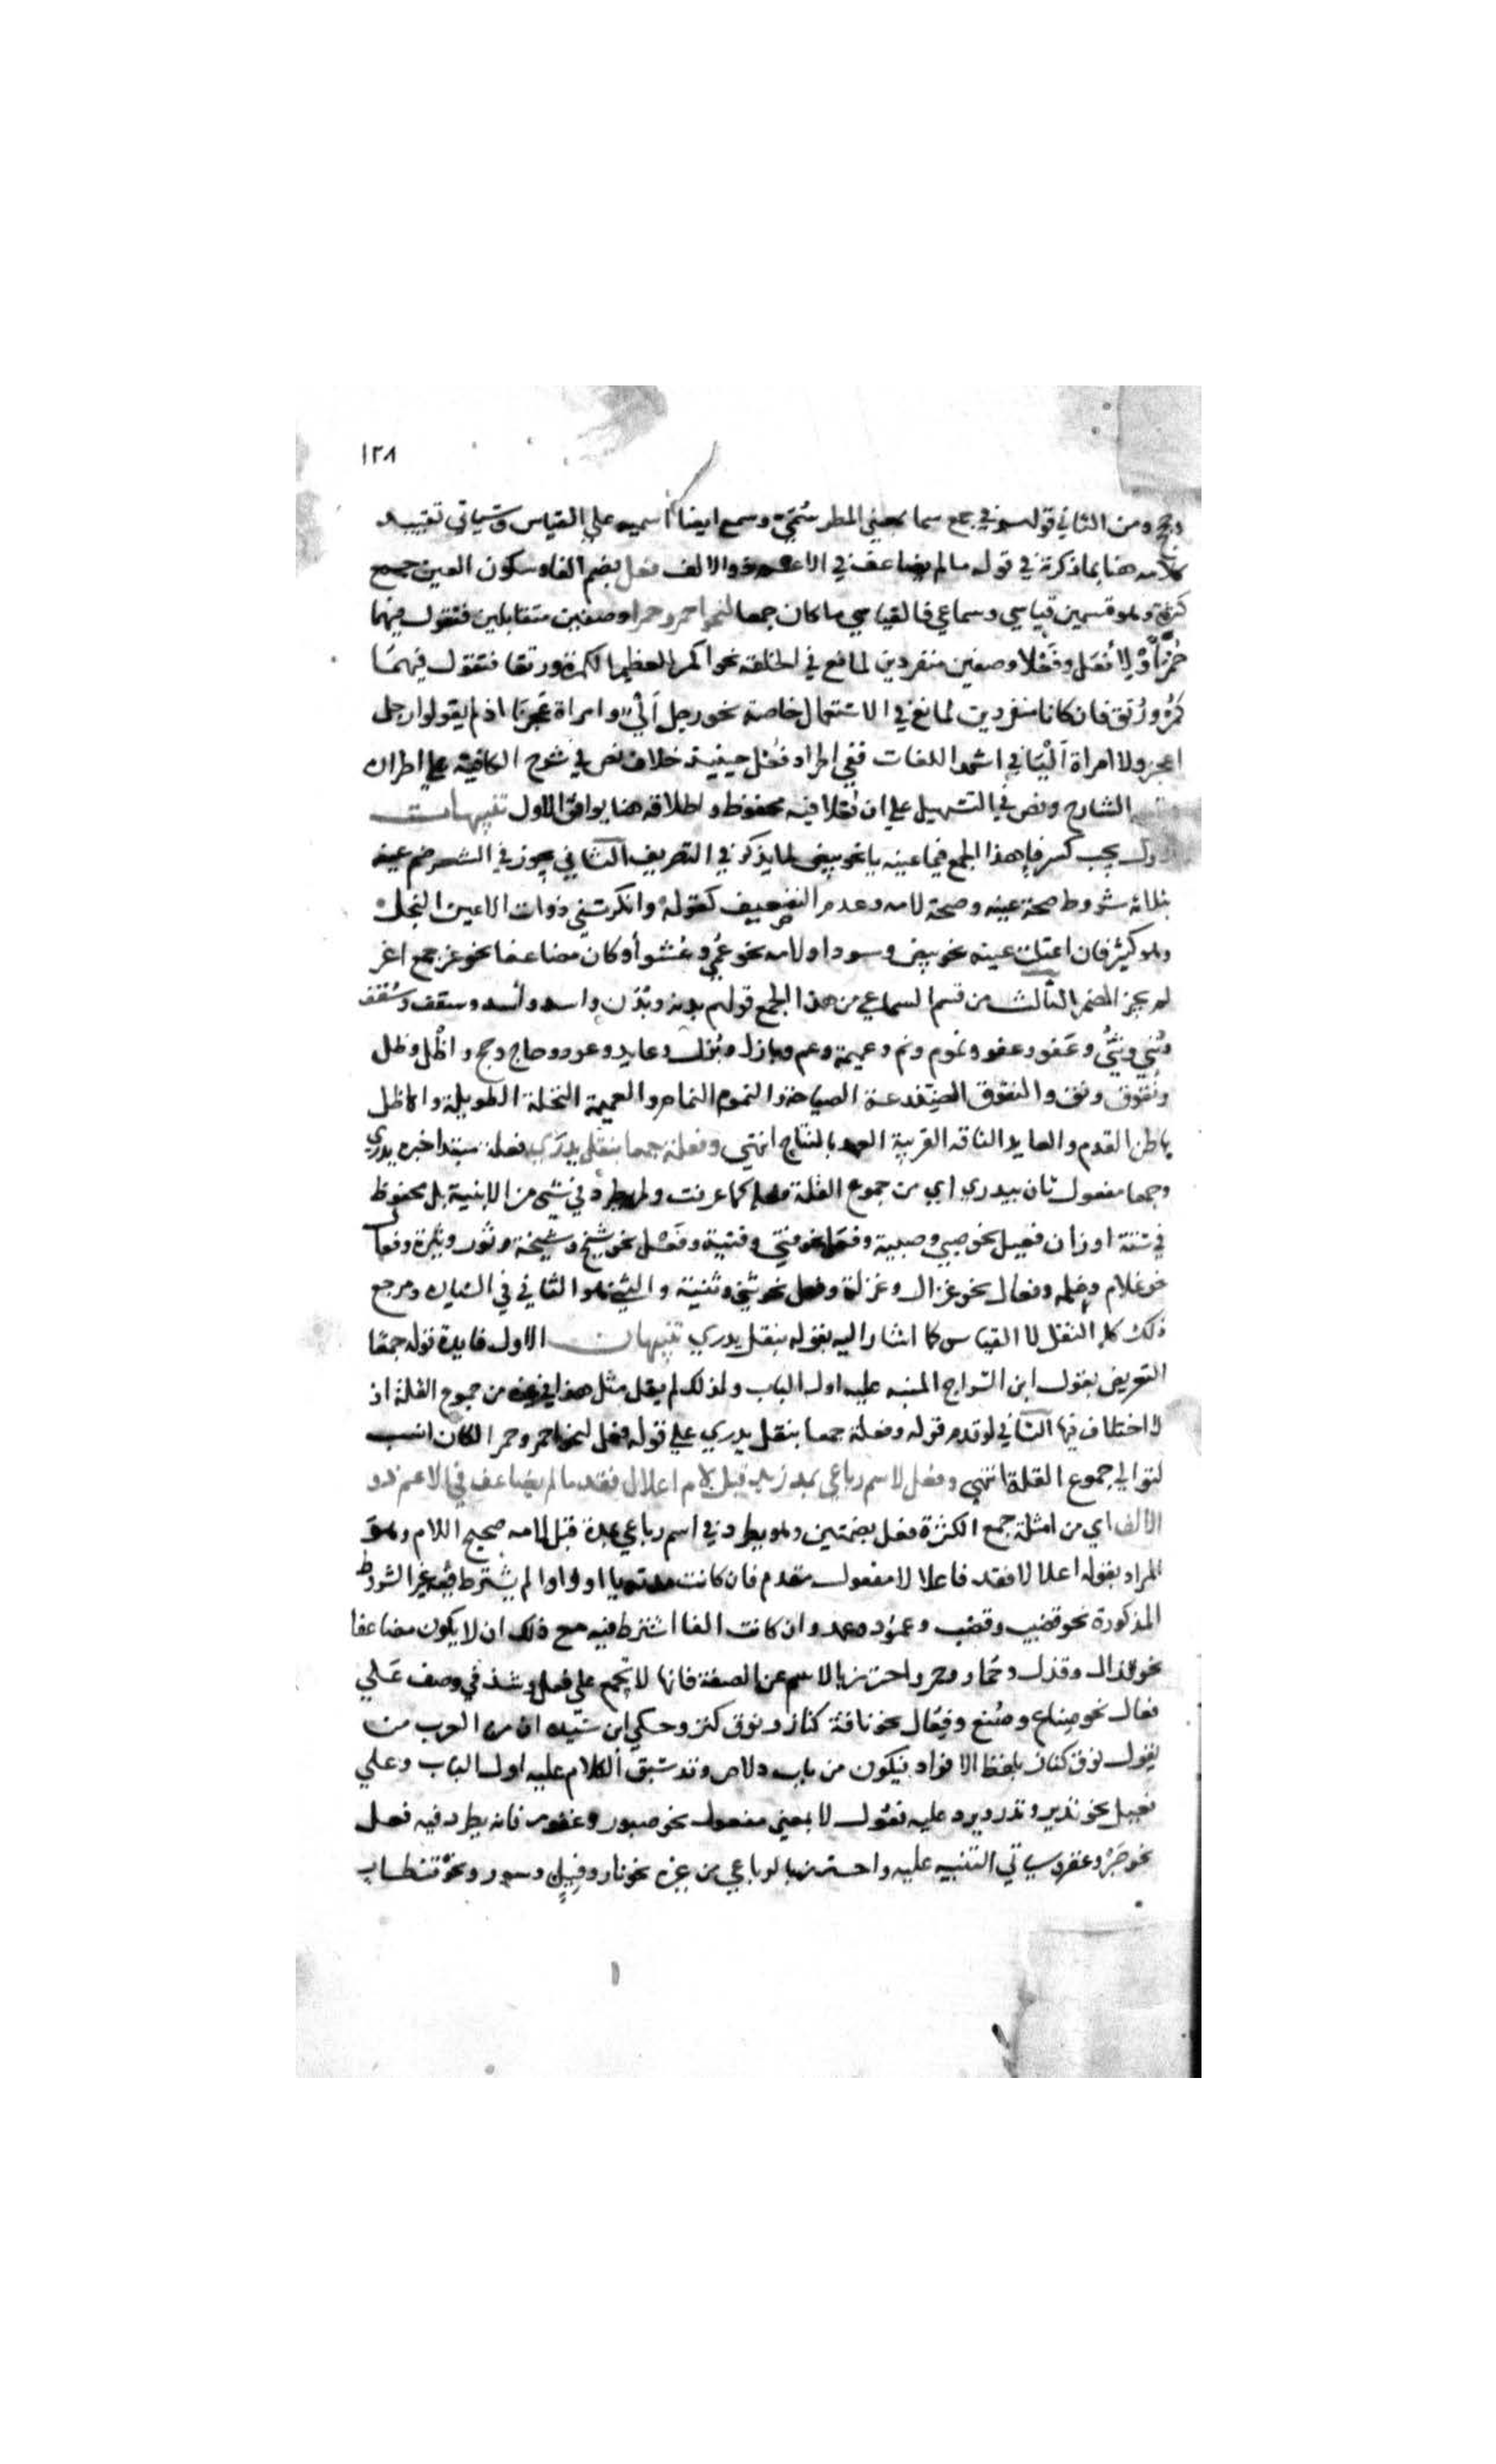 ١٢٨
وحجج ومن الثاني قولهم في جمع سما بمعني المطر سُمِيّ وسمع ايضا اسمية علي القياس وسياتي تقييد
كلامه هنا بما ذكره في قوله ما لم يضاعف في الاعم ذو الالف فعل بضم الفا وسكون العين جمع
كثرة وهو قسمين قياسي وسماعي فالقياسي ما كان جمعا لنحو احمر وحمرا وصفين متقابلين فتقول فيهما
حُمْر أوْ لِأفعَل وفَعْلا وصفين منفردين لمانع في الخلقة نحو اكمر لعظيم الكمرة ورتقا فتقول فيهما
كُمْر ورُتق فان كانا منفردين لمانع في الاستعمال خاصة نحو رجل آلَى وامراة عجزا اذ لم يقولوا رجل
اعجز ولا امراة ألْيَا في اشهر اللغات ففي اطراد فُعْل حينيذ خلاف نص في شرح الكافية علي اطراده
الشارح ونص في التسهيل علي ان فُعْلا فيه محفوظ واطلاقه هنا يوافق الاول تنبيهات
الاول يجب كسر فا هذا الجمع فيما عينه يا نحو بيض لما يذكر في التصريف الثاني يجوز في الشعر ضم عينه
بثلاثة شروط صحة عينه وصحة لامه وعدم التضعيف كقوله وانكرتني ذوات الاعين النجل
وهو كثير فان اعتلت عينه نحو بيض وسود او لامه نحو عُمْي وعُشو أو كان مضاعفا نحو غر جمع اغر
لم يجز الضم الثالث من قسم السماعي من هذا الجمع قولهم بدنة وبُدْن واسد وأُسد وسقف وسُقف
وثَنِي وثُنْي وعَفو وعفو ونموم ونم وعميمة وعم وبازل وبُزل وعايد وعود وحاج وحج واظَل وظل
ونَقُوق ونق والنقوق الضِفدعة الصياحة والنموم النمام والعميمة النخلة الطويلة والاظل
باطن القدم والعايد الناقة القريبة العهد بالنتاج انتهي وفعلة جمعا بنقل يدري فعلة مبتدا خبره يدري
وجمعا مفعول ثان بيدري اي من جموع القلة فعلة كما عرفت ولم يطرد في شي من الابنية بل محفوظ
في ستة اوزان فعيل نحو صبي وصبية وفعَل نحو فتي وفتية وفَعْل نحو شيخ وشيخة وثور وثيرة وفعال
نحو غلام وغلمة وفعال نحو غزال وغزلة وفعل نحو ثني وثنية والثني هو الثاني في السيادة ومرجع
ذلك كله النقل لا القياس كما اشار اليه بقوله بنقل يدري تنبيهات الاول فايدة قوله جمعا
التعريض بقول ابن السراج المنبه عليه اول الباب ولذلك لم يقل مثل هذا في غيره من جموع القلة اذ
لا اختلاف فيها الثاني لو قدم قوله وفعلة جمعا بنقل يدري علي قوله فعل لنحو احمر وحمرا لكان انسب
لتوالي جموع القلة انتهي وفعل لاسم رباعي بمد زيد قبل لام اعلالا فقد ما لم يضاعف في الاعم ذو
الالف اي من امثلة جمع الكثرة فعل بضمتين وهو يطرد في اسم رباعي بمدة قبل لامه صحيح اللام وهو
المراد بقوله اعلالا فقد فاعلالا مفعول مقدم فان كانت مدته يا او واوا لم يشترط فيه غير الشروط
المذكورة نحو قضيب وقضب وعمُود وعمد وان كانت الفا اشترط فيه مع ذلك ان لا يكون مضاعفا
نحو قذال وقذل وحمار وحمر واحترز بالاسم عن الصفة فانها لا تجمع علي فعل وشذ في وصف عَلي
فعال نحو صناع وصُنع وفِعَال نحو ناقة كناز ونوق كنز وحكي ابن سيده ان من العرب من
يقول نوق كناز بلفظ الافراد فيكون من باب دلاص وقد سبق الكلام عليه اول الباب وعلي
فعيل نحو نذير ونذر ويرد عليه فَعُول لا بمعني مفعول نحو صبور وغفور فانه يطرد فيه فعل
نحو صُبُر وغفر وسياتي التنبيه عليه واحترز بالرباعي من غيره نحو نار وفِيل وسور ونحو قنطار